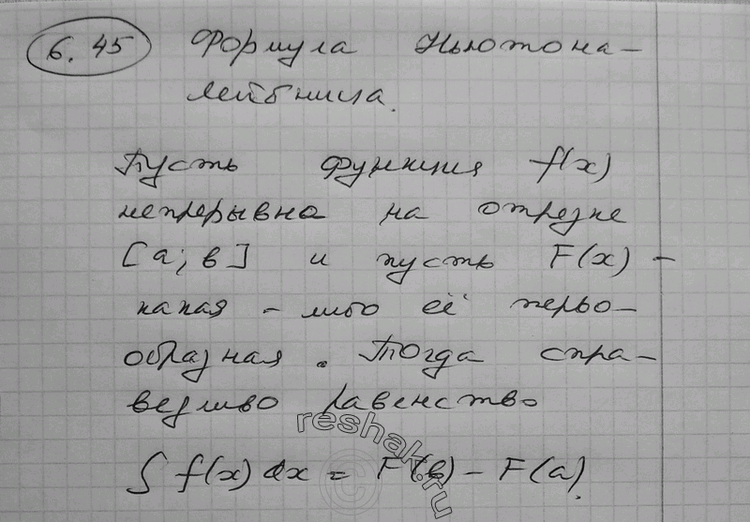 6.45 Формула Ньютона-
Лейбница.
Пусть функция f(x)
непрерывна на отрезке
[a; в] и пусть F(x) -
какая-либо её перво-
образная. Тогда спра-
ведливо равенство
∫ f(x) dx = F(в) - F(a).
reshak.ru